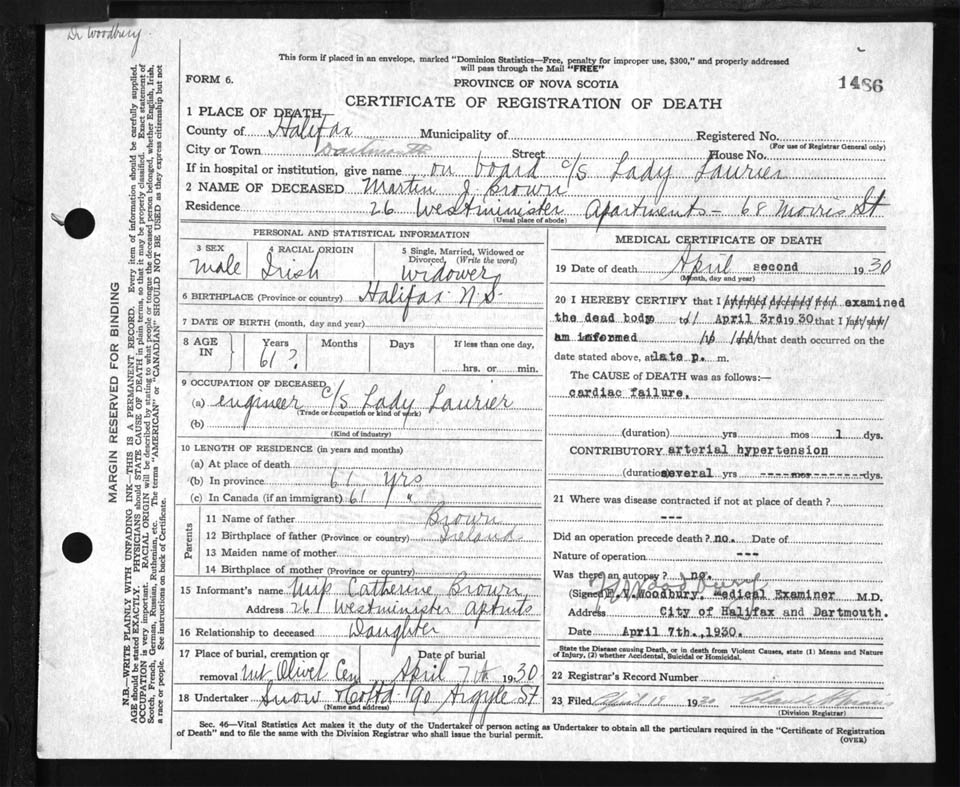 Dr Woodbury
This form if placed in an envelope, marked "Dominion Statistics—Free, penalty for improper use, $300," and properly addressed
will pass through the Mail "FREE"
FORM 6.
PROVINCE OF NOVA SCOTIA
1486
CERTIFICATE OF REGISTRATION OF DEATH
1 PLACE OF DEATH
County of Halifax Municipality of Registered No.
(For use of Registrar General only)
City or Town Dartmouth Street House No.
If in hospital or institution, give name on board c/s Lady Laurier
2 NAME OF DECEASED Martin J Brown
Residence 26 Westminister Apartments – 68 Morris St
(Usual place of abode)
PERSONAL AND STATISTICAL INFORMATION
3 SEX 4 RACIAL ORIGIN 5 Single, Married, Widowed or
Divorced, (Write the word)
male Irish Widower
6 BIRTHPLACE (Province or country) Halifax N.S.
7 DATE OF BIRTH (month, day and year)
8 AGE IN Years Months Days If less than one day,
61?
hrs. or min.
9 OCCUPATION OF DECEASED
(a) engineer c/s Lady Laurier
(Trade or occupation or kind of work)
(b)
(Kind of industry)
10 LENGTH OF RESIDENCE (in years and months)
(a) At place of death
(b) In province 61 yrs
(c) In Canada (if an immigrant) 61 "
Parents
11 Name of father Brown
12 Birthplace of father (Province or country) Ireland
13 Maiden name of mother
14 Birthplace of mother (Province or country)
15 Informant's name Miss Catherine Brown
Address 26 Westminister Aptmts
16 Relationship to deceased Daughter
17 Place of burial, cremation or Date of burial
removal Mt Olivet Cem April 7th 1930
18 Undertaker Snow & Co Ltd 90 Argyle St
(Name and address)
MEDICAL CERTIFICATE OF DEATH
19 Date of death April second 1930
(Month, day and year)
20 I HEREBY CERTIFY that I attended deceased from examined
the dead body to April 3rd 1930 that I last saw
am informed and that death occurred on the
date stated above, at late p. m.
The CAUSE of DEATH was as follows:—
cardiac failure.
(duration) yrs mos 1 dys.
CONTRIBUTORY arterial hypertension
(duration several yrs ---- dys.
21 Where was disease contracted if not at place of death?
---
Did an operation precede death? no. Date of
Nature of operation ---
Was there an autopsy? no.
(Signed P.V.Woodbury. Medical Examiner M.D.
Address City of Halifax and Dartmouth.
Date April 7th.,1930.
State the Disease causing Death, or in death from Violent Causes, state (1) Means and Nature
of Injury, (2) whether Accidental, Suicidal or Homicidal.
22 Registrar's Record Number
23 Filed April 19 1930
(Division Registrar)
Sec. 46—Vital Statistics Act makes it the duty of the Undertaker or person acting as Undertaker to obtain all the particulars required in the "Certificate of Registration
of Death" and to file the same with the Division Registrar who shall issue the burial permit.
(OVER)
MARGIN RESERVED FOR BINDING
N.B.—WRITE PLAINLY WITH UNFADING INK—THIS IS A PERMANENT RECORD. Every item of information should be carefully supplied.
AGE should be stated EXACTLY. PHYSICIANS should STATE CAUSE OF DEATH in plain terms, so that it may be properly classified. Exact statement of
OCCUPATION is very important. RACIAL ORIGIN will be described by stating to what people or tongue the deceased person belonged, whether English, Irish,
Scotch, French, German, Russian, Ruthenian, etc. The terms "AMERICAN" or "CANADIAN" SHOULD NOT BE USED as they express citizenship but not
a race or people. See instructions on back of Certificate.